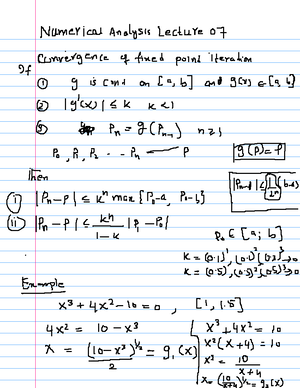 Numerical Analysis Lecture 07
Convergence of fixed point iteration
If
① g is cont on [a, b] and g(x) ∈ [a, b]
② |g'(x)| ≤ k k < 1
③ Pn = g(Pn-1) n ≥ 1
P0, P1, P2 - - Pn P g(P) = P
Then
(i) |Pn - P| ≤ k^n max {P0-a, P0-b}
(ii) |Pn - P| ≤ k^n/(1-k) |P1 - P0|
P0 ∈ [a, b]
K = (0.1)^1, (0.1)^2, (0.1)^3 → 0
K = (0.5), (0.5)^2, (0.5)^3 → 0
Example
x^3 + 4x^2 - 10 = 0, [1, 1.5]
4x^2 = 10 - x^3
x = (10-x^3)^1/2 / 2 = g1(x)
x^3 + 4x^2 = 10
x^2(x+4) = 10
x^2 = 10/(x+4)
x = (10/(x+4))^1/2 = g2(x)